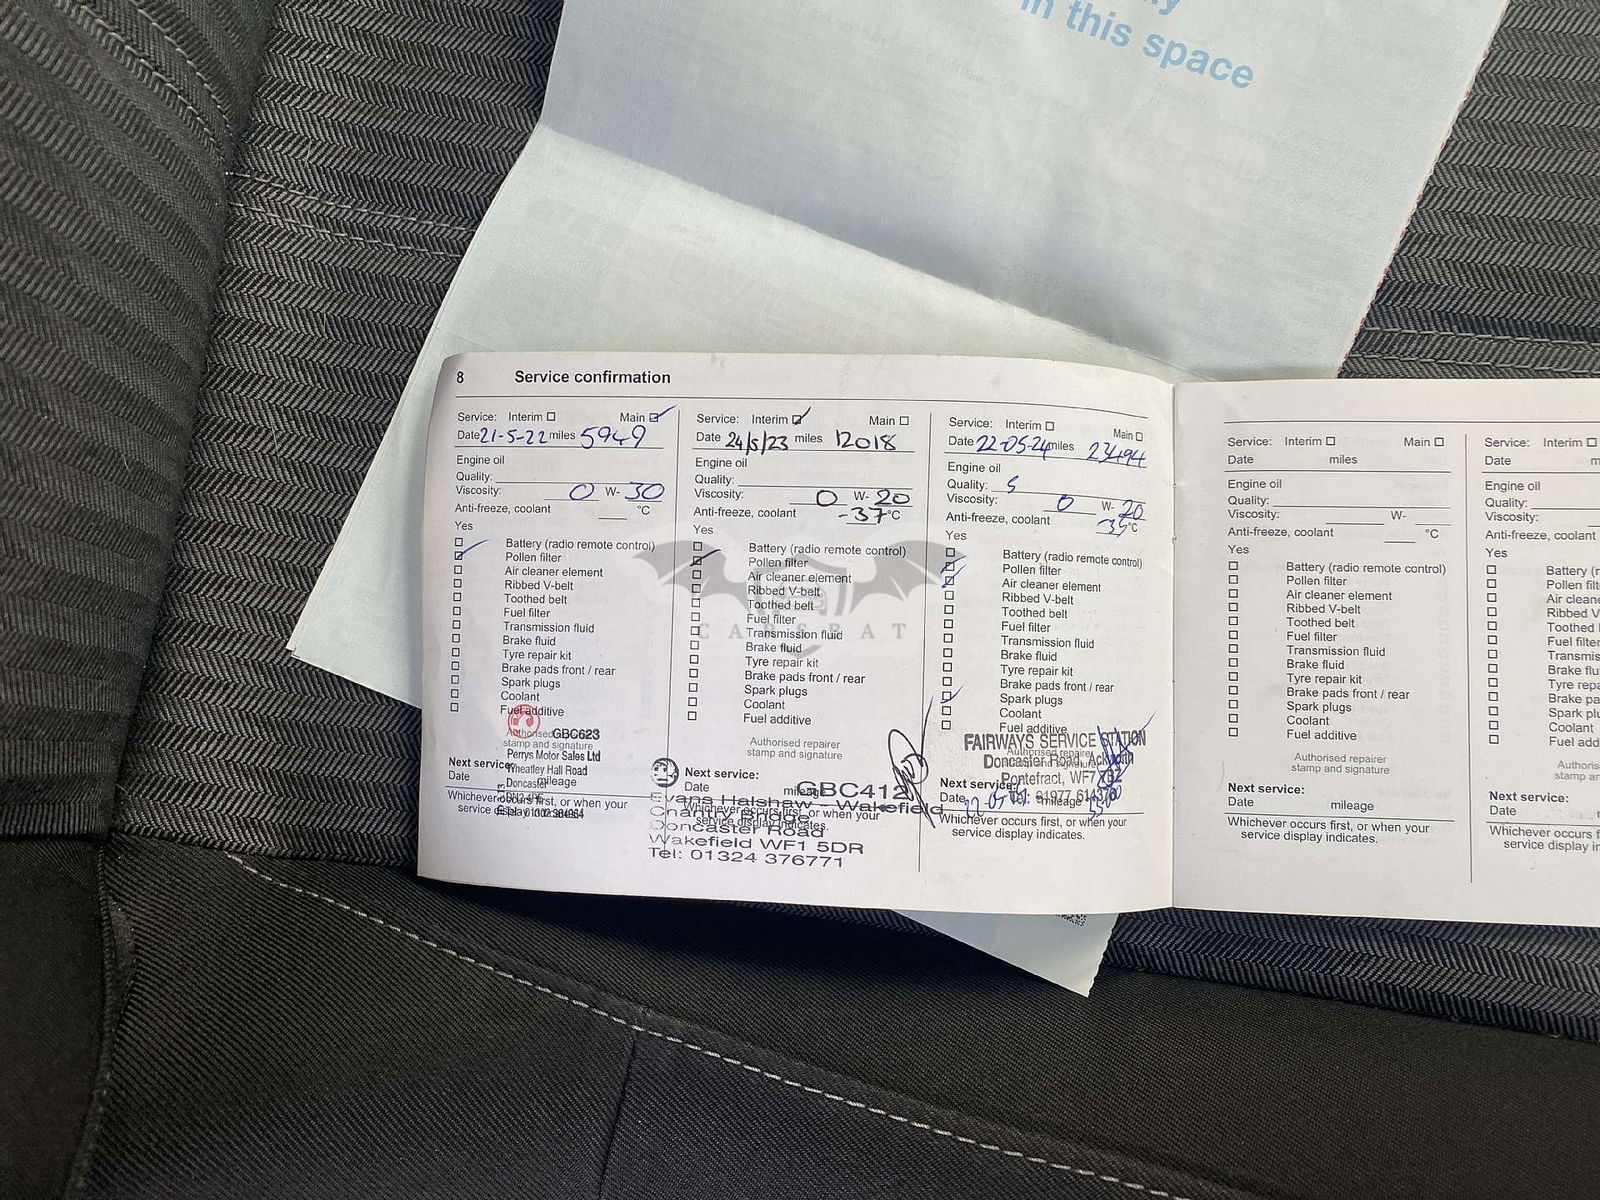 in this space
8 Service confirmation
Service: Interim Main
Date 21-5-22 miles 5949
Engine oil
Quality:
Viscosity: 0 W- 30
Anti-freeze, coolant °C
Yes
Battery (radio remote control)
Pollen filter
Air cleaner element
Ribbed V-belt
Toothed belt
Fuel filter
Transmission fluid
Brake fluid
Tyre repair kit
Brake pads front / rear
Spark plugs
Coolant
Fuel additive
Authorised GBC623
stamp and signature
Perrys Motor Sales Ltd
Next service: Wheatley Hall Road
Date Doncaster mileage
Whichever occurs first, or when your
service display indicates.
Service: Interim Main
Date 24/5/23 miles 12018
Engine oil
Quality:
Viscosity: 0 W- 20
Anti-freeze, coolant -37°C
Yes
Battery (radio remote control)
Pollen filter
Air cleaner element
Ribbed V-belt
Toothed belt
Fuel filter
Transmission fluid
Brake fluid
Tyre repair kit
Brake pads front / rear
Spark plugs
Coolant
Fuel additive
Authorised repairer
stamp and signature
Next service:
Date mileage GBC412
Evans Halshaw - Wakefield
Whichever occurs first, or when your
service display indicates.
Chantry Bridge
Doncaster Road
Wakefield WF1 5DR
Tel: 01324 376771
Service: Interim Main
Date 22-05-24 miles 23494
Engine oil
Quality: 5
Viscosity: 0 W- 20
Anti-freeze, coolant -35°C
Yes
Battery (radio remote control)
Pollen filter
Air cleaner element
Ribbed V-belt
Toothed belt
Fuel filter
Transmission fluid
Brake fluid
Tyre repair kit
Brake pads front / rear
Spark plugs
Coolant
Fuel additive
FAIRWAYS SERVICE STATION
Authorised repairer
stamp and signature
Doncaster Road, Ackworth
Pontefract, WF7 7BZ
Next service: Tel: 01977 614370
Date mileage
Whichever occurs first, or when your
service display indicates.
CARSBAT
Service: Interim Main
Date miles
Engine oil
Quality:
Viscosity: W-
Anti-freeze, coolant °C
Yes
Battery (radio remote control)
Pollen filter
Air cleaner element
Ribbed V-belt
Toothed belt
Fuel filter
Transmission fluid
Brake fluid
Tyre repair kit
Brake pads front / rear
Spark plugs
Coolant
Fuel additive
Authorised repairer
stamp and signature
Next service:
Date mileage
Whichever occurs first, or when your
service display indicates.
Service: Interim
Date
Engine oil
Quality:
Viscosity:
Anti-freeze, coolant
Yes
Battery (r
Pollen filte
Air cleane
Ribbed V-
Toothed
Fuel filter
Transmis
Brake flu
Tyre repa
Brake pa
Spark pl
Coolant
Fuel add
Authoris
stamp an
Next service:
Date
Whichever occurs f
service display in